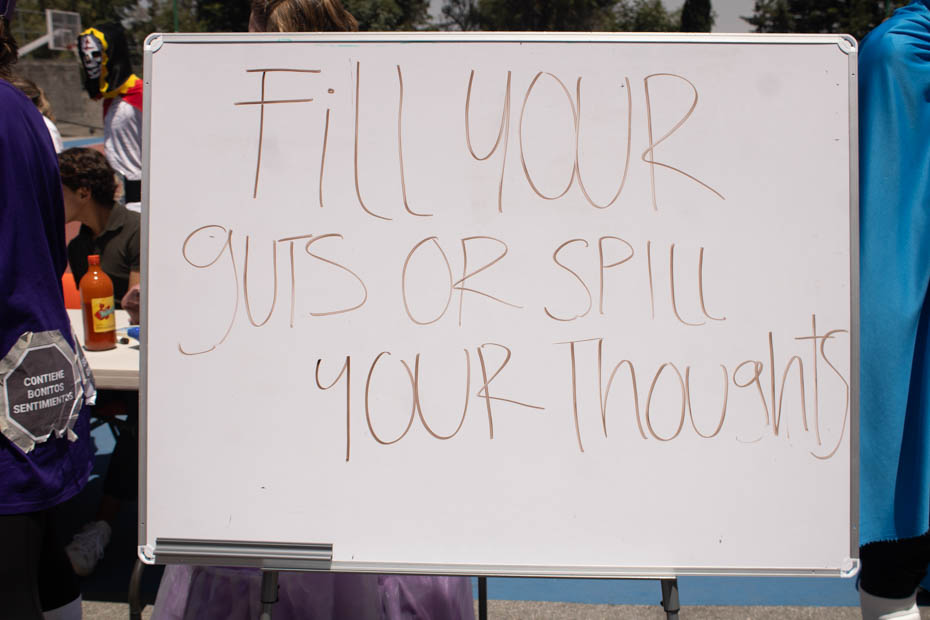 Fill YOUR
gUTS OR SPILL
YOUR Thoughts
CONTIENE
BONITOS
SENTIMIENTOS